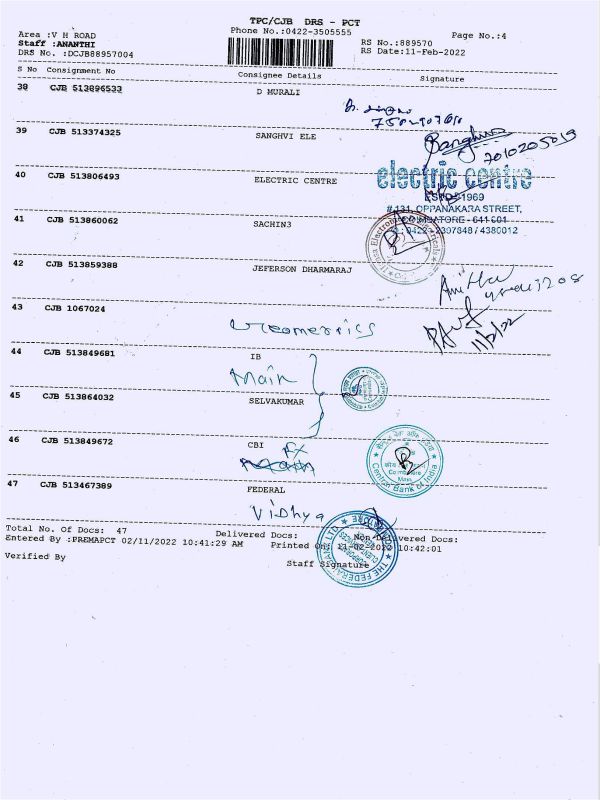 TPC/CJB DRS - PCT
Area :V H ROAD Phone No.:0422-3505555 Page No.:4
Staff :ANANTHI RS No.:889570
DRS No. :DCJB88957004 RS Date:11-Feb-2022
S No Consignment No Consignee Details Signature
38 CJB 513896533 D MURALI
39 CJB 513374325 SANGHVI ELE
Sanghvi
7010205019
40 CJB 513806493 ELECTRIC CENTRE
electric centre
ESTD 1969
# 131, OPPANAKARA STREET,
COIMBATORE - 641 001
: 0422 - 2397848 / 4380012
41 CJB 513860062 SACHIN3
42 CJB 513859388 JEFERSON DHARMARAJ
Anitha
43 CJB 1067024
11/2/22
44 CJB 513849681 IB
Main
45 CJB 513864032 SELVAKUMAR
46 CJB 513849672 CBI
Central Bank of India
Coimbatore
Main
47 CJB 513467389 FEDERAL
Vidhya
Total No. Of Docs: 47 Delivered Docs: Non-Delivered Docs:
Entered By :PREMAPCT 02/11/2022 10:41:29 AM Printed On: 11-02-2022 10:42:01
Verified By Staff Signature
THE FEDERAL BANK LTD. COIMBATORE